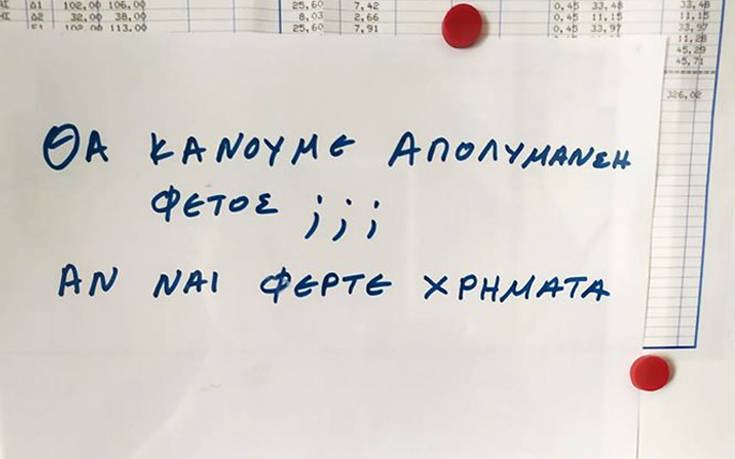 Δ1 102,00 106,00 25,60 7,42 0,45 33,48 33,48
Δ2 32,00 38,00 8,03 2,66 0,45 11,15 11,15
25,60 7,91 0,45 33,97 33,97
11,28
45,29
45,71
326,02
ΘΑ ΚΑΝΟΥΜΕ ΑΠΟΛΥΜΑΝΣΗ
ΦΕΤΟΣ ;;;
ΑΝ ΝΑΙ ΦΕΡΤΕ ΧΡΗΜΑΤΑ